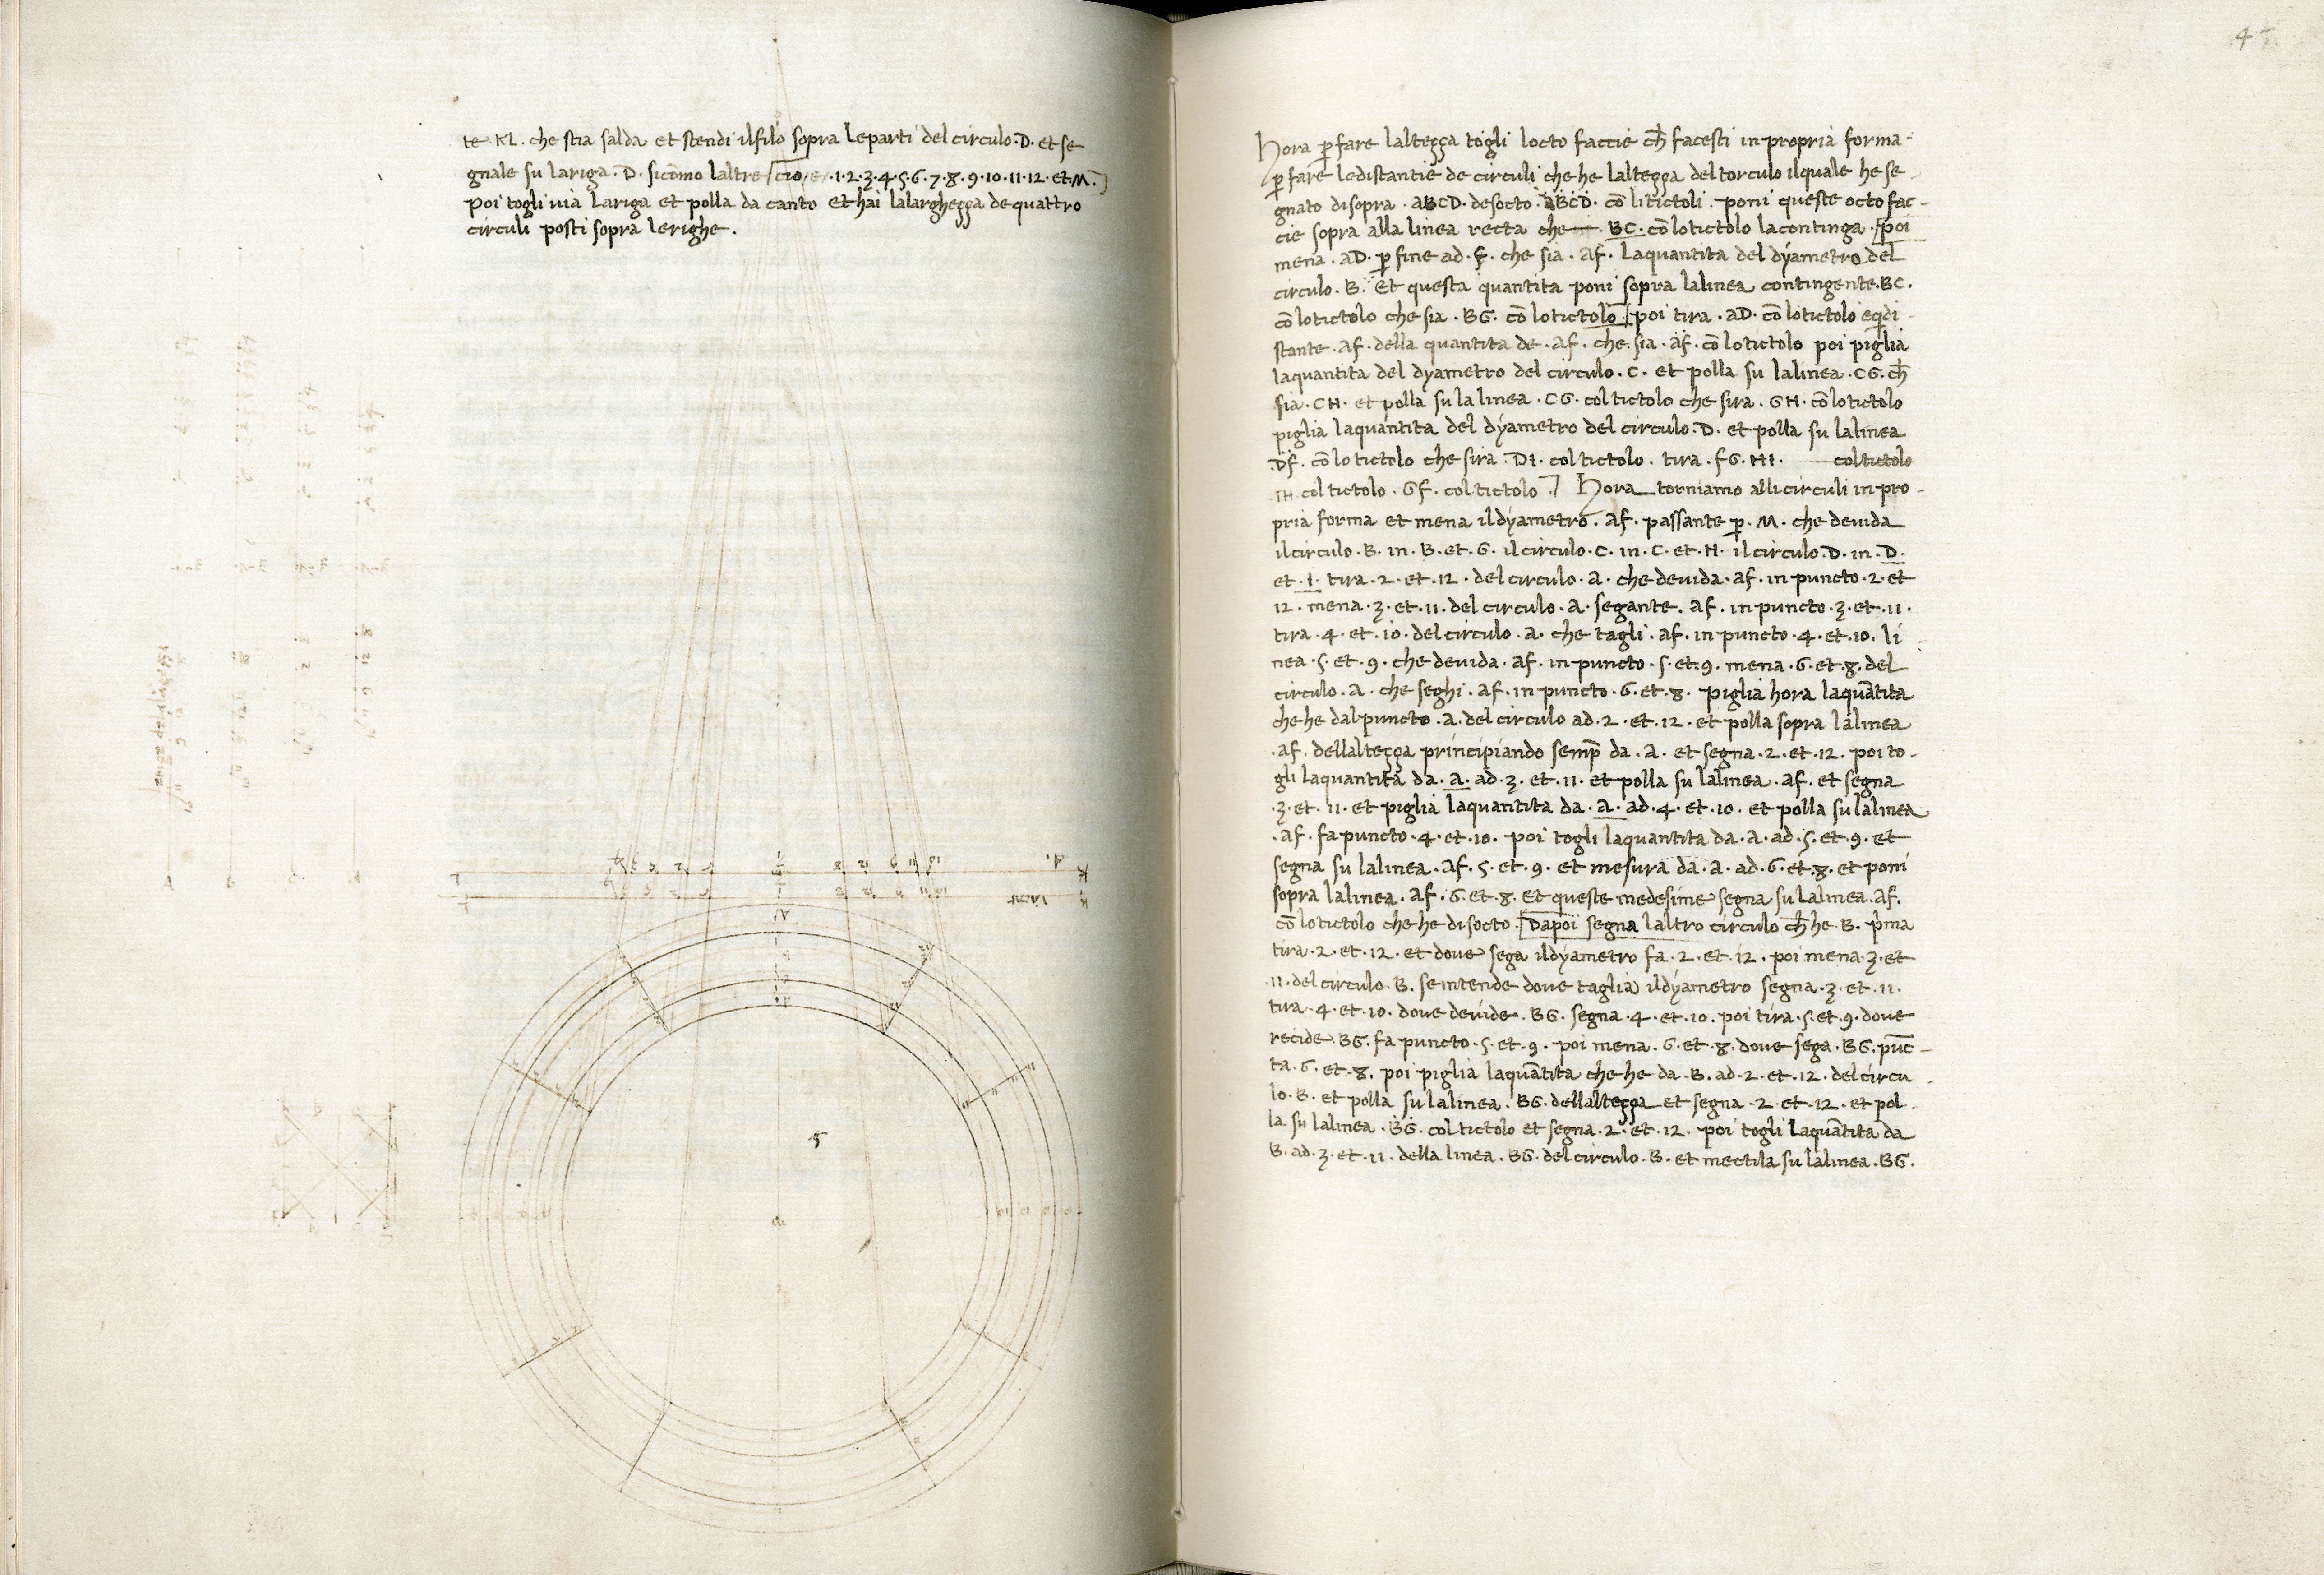 te · KL · che stia salda et stendi ilfilo sopra leparti del circulo · D · et se
gnale su lariga · D · sicōmo laltre cio e · 1 · 2 · 3 · 4 · 5 · 6 · 7 · 8 · 9 · 10 · 11 · 12 · et · M ·
poi togli uia lariga et polla da canto et hai lalarghezza de quattro
circuli posti sopra lerighe ·
5
47
Hora p̱ fare laltezza togli locto faccie ch̄ facesti in propria forma ·
p̱ fare ledistantie de circuli che he laltezza del torculo ilquale he se
gnato disopra · ABCD · desocto · ABCD · cō litictoli · poni queste octo fac-
cie sopra alla linea recta che · BC · cō lotictolo lacontinga · poi
mena · AD · p̱ fine ad · F · che sia · AF · laquantita del dyametro del
circulo · B · Et questa quantita poni sopra lalinea contingente · BC ·
cō lotictolo che sia · BG · cō lotictolo poi tira · AD · cō lotictolo eqdi
stante · AF · della quantita de · AF · che sia · AF · cō lotictolo poi piglia
laquantita del dyametro del circulo · C · et polla su lalinea · CG · ch̄
sia · CH · et polla su la linea · CG · col tictolo che sira · GH · cō lotictolo
piglia laquantita del dyametro del circulo · D · et polla su lalinea
· DF · cō lo tictolo che sira · DI · col tictolo · tira · FG · HI · col tictolo
IH col tictolo · GF · col tictolo · Hora torniamo alli circuli in pro-
pria forma et mena ildyametro · AF · passante p̱ · M · che deuida
ilcirculo · B · in · B · et · G · il circulo · C · in · C · et · H · il circulo · D · in · D ·
et · I · tira · 2 · et · 12 · del circulo · A · che deuida · AF · in puncto · 2 · et
12 · mena · 3 · et · 11 · del circulo · A · segante · AF · in puncto · 3 · et · 11 ·
tira · 4 · et · 10 · del circulo · A · che tagli · AF · in puncto · 4 · et · 10 · li
nea · 5 · et · 9 · che deuida · AF · in puncto · 5 · et · 9 · mena · 6 · et · 8 · del
circulo · A · che seghi · AF · in puncto · 6 · et · 8 · piglia hora laquātita
che he dal puncto · A · del circulo ad · 2 · et · 12 · et polla sopra lalinea
· AF · dellaltezza principiando semp̄ da · A · et segna · 2 · et · 12 · poi to-
gli laquantita da · A · ad · 3 · et · 11 · et polla su lalinea · AF · et segna
· 3 · et · 11 · et piglia laquantita da · A · ad · 4 · et · 10 · et polla su lalinea
· AF · fa puncto · 4 · et · 10 · poi togli laquantita da · A · ad · 5 · et · 9 · et
segna su lalinea · AF · 5 · et · 9 · et mesura da · A · ad · 6 · et · 8 · et poni
sopra lalinea · AF · 6 · et · 8 · Et queste medesime segna su lalinea · AF ·
cō lotictolo che he disocto · Dapoi segna laltro circulo ch̄ he · B · p̄ma
tira · 2 · et · 12 · et doue sega ildyametro fa · 2 · et · 12 · poi mena · 3 · et
· 11 · del circulo · B · se intende doue taglia ildyametro segna · 3 · et · 11 ·
tira · 4 · et · 10 · doue deuide · BG · segna · 4 · et · 10 · poi tira · 5 · et · 9 · doue
recide · BG · fa puncto · 5 · et · 9 · poi mena · 6 · et · 8 · doue sega · BG · pūc-
ta · 6 · et · 8 · poi piglia laquātita che he da · B · ad · 2 · et · 12 · del circu
lo · B · et polla su lalinea · BG · dellaltezza et segna · 2 · et · 12 · et pol-
la su lalinea · BG · col tictolo et segna · 2 · et · 12 · poi togli laquātita da
B · ad · 3 · et · 11 · della linea · BG · del circulo · B · et mectila su lalinea · BG ·